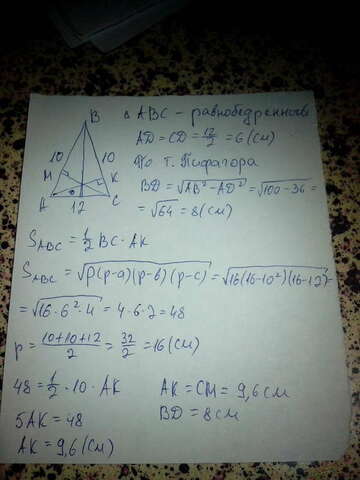 B
10 10
M K
A 12 C
△ ABC - равнобедренный
AD = CD = 12/2 = 6 (см)
По т. Пифагора
BD = √(AB² - AD²) = √(100 - 36) =
= √64 = 8 (см)
S_ABC = 1/2 BC · AK
S_ABC = √(p(p-a)(p-b)(p-c)) = √(16(16-10)²(16-12)) =
= √(16 · 6² · 4) = 4 · 6 · 2 = 48
p = (10+10+12)/2 = 32/2 = 16 (см)
48 = 1/2 · 10 · AK
5AK = 48
AK = 9,6 (см)
AK = CM = 9,6 см
BD = 8 см